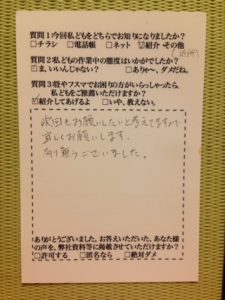 質問1今回私どもをどちらでお知りになりましたか?
□チラシ □電話帳 □ネット ☑紹介 その他
質問2私どもの作業中の態度はいかがでしたか?
☑ま、いいんじゃない? □ありゃ〜、ダメだね。
質問3畳やフスマでお困りの方がいらっしゃったら、
私どもをご推薦いただけますか?
☑紹介してあげるよ □いや、教えない。
次回もお願いしたいと考えてますので
宜しくお願いします。
有り難うございました。
ありがとうございました。お答えいただいた、あなた様
の声を、弊社資料等に掲載させていただけますか?
□許可する □匿名なら □絶対ダメ